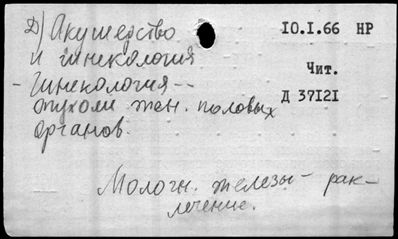 Д) Акушерство
и гинекология
- Гинекология --
опухоли жен. половых
органов.
10.I.66 НР
Чит.
Д 37121
Молочн. железы - рак -
лечение.